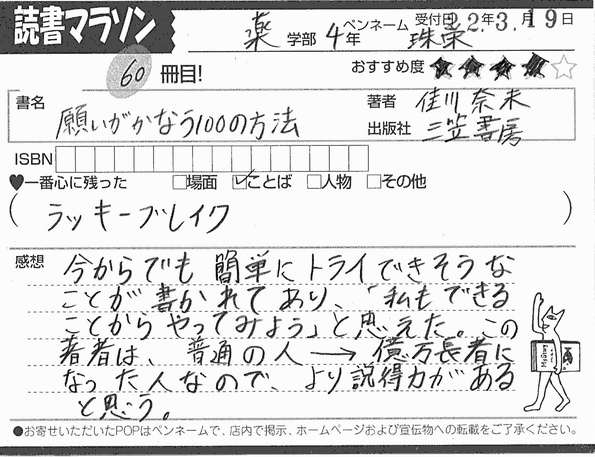 読書マラソン
薬 学部 4年 ペンネーム 珠菜 受付日 22年3月19日
60 冊目! おすすめ度 ★★★★☆
書名 願いがかなう100の方法
著者 佳川 奈未
出版社 三笠書房
ISBN
♥一番心に残った □場面 ☑ことば □人物 □その他
(ラッキーブレイク)
感想 今からでも簡単にトライできそうな
ことが書かれてあり、「私もできる
ことからやってみよう」と思えた。この
著者は、普通の人→億万長者に
なった人なので、より説得力がある
と思う。
●お寄せいただいたPOPはペンネームで、店内で掲示、ホームページおよび宣伝物への転載をご了承ください。